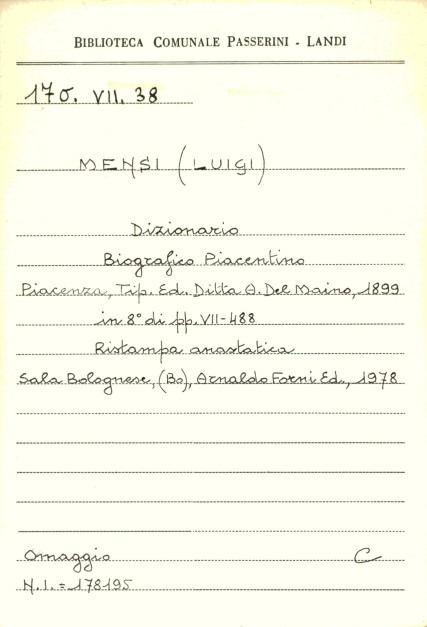 BIBLIOTECA COMUNALE PASSERINI - LANDI
170. VII. 38
MENSI (LUIGI)
Dizionario
Biografico Piacentino
Piacenza, Tip. Ed. Ditta A. Del Maino, 1899
in 8° di pp. VII-488
Ristampa anastatica
Sala Bolognese, (Bo), Arnaldo Forni Ed., 1978
Omaggio C
N.I. = 178195